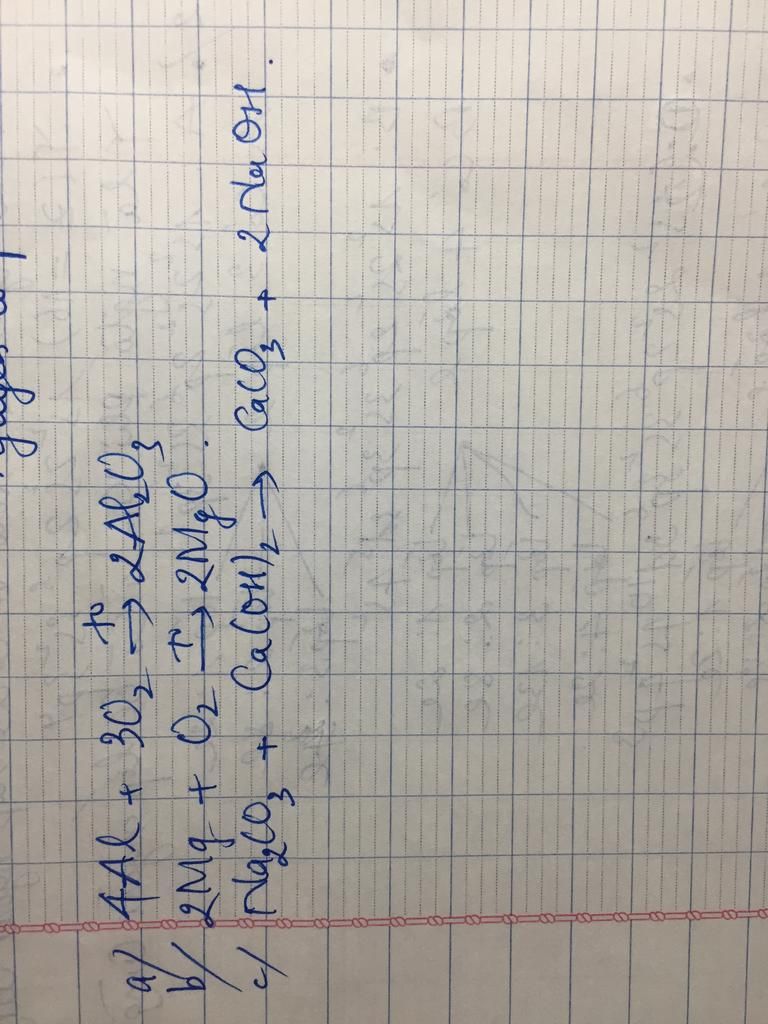 a/ 4Al + 3O₂ →(t°) 2Al₂O₃
b/ 2Mg + O₂ →(t°) 2MgO.
c/ Na₂CO₃ + Ca(OH)₂ → CaCO₃ + 2NaOH.